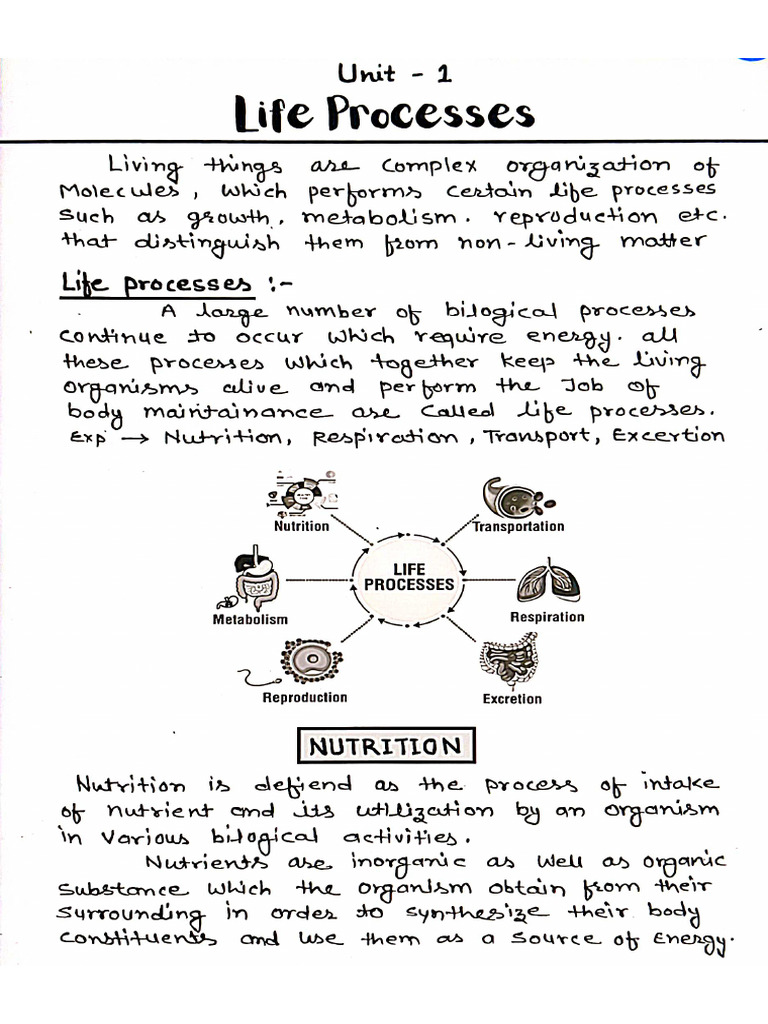 Unit - 1
Life Processes
Living things are complex organization of
Molecules, which performs certain life processes
such as growth, metabolism. reproduction etc.
that distinguish them from non-living matter
Life processes :-
A large number of bilogical processes
continue to occur which require energy. all
these processes which together keep the living
organisms alive and perform the Job of
body maintainance are called life processes.
Exp → Nutrition, Respiration, Transport, Excertion
Nutrition
Transportation
LIFE
PROCESSES
Metabolism
Respiration
Reproduction
Excretion
NUTRITION
Nutrition is defiend as the process of intake
of nutrient and its utilization by an organism
in various bilogical activities.
Nutrients are inorganic as well as organic
substance which the organism obtain from their
surrounding in order to synthesize their body
constituents and use them as a source of Energy.